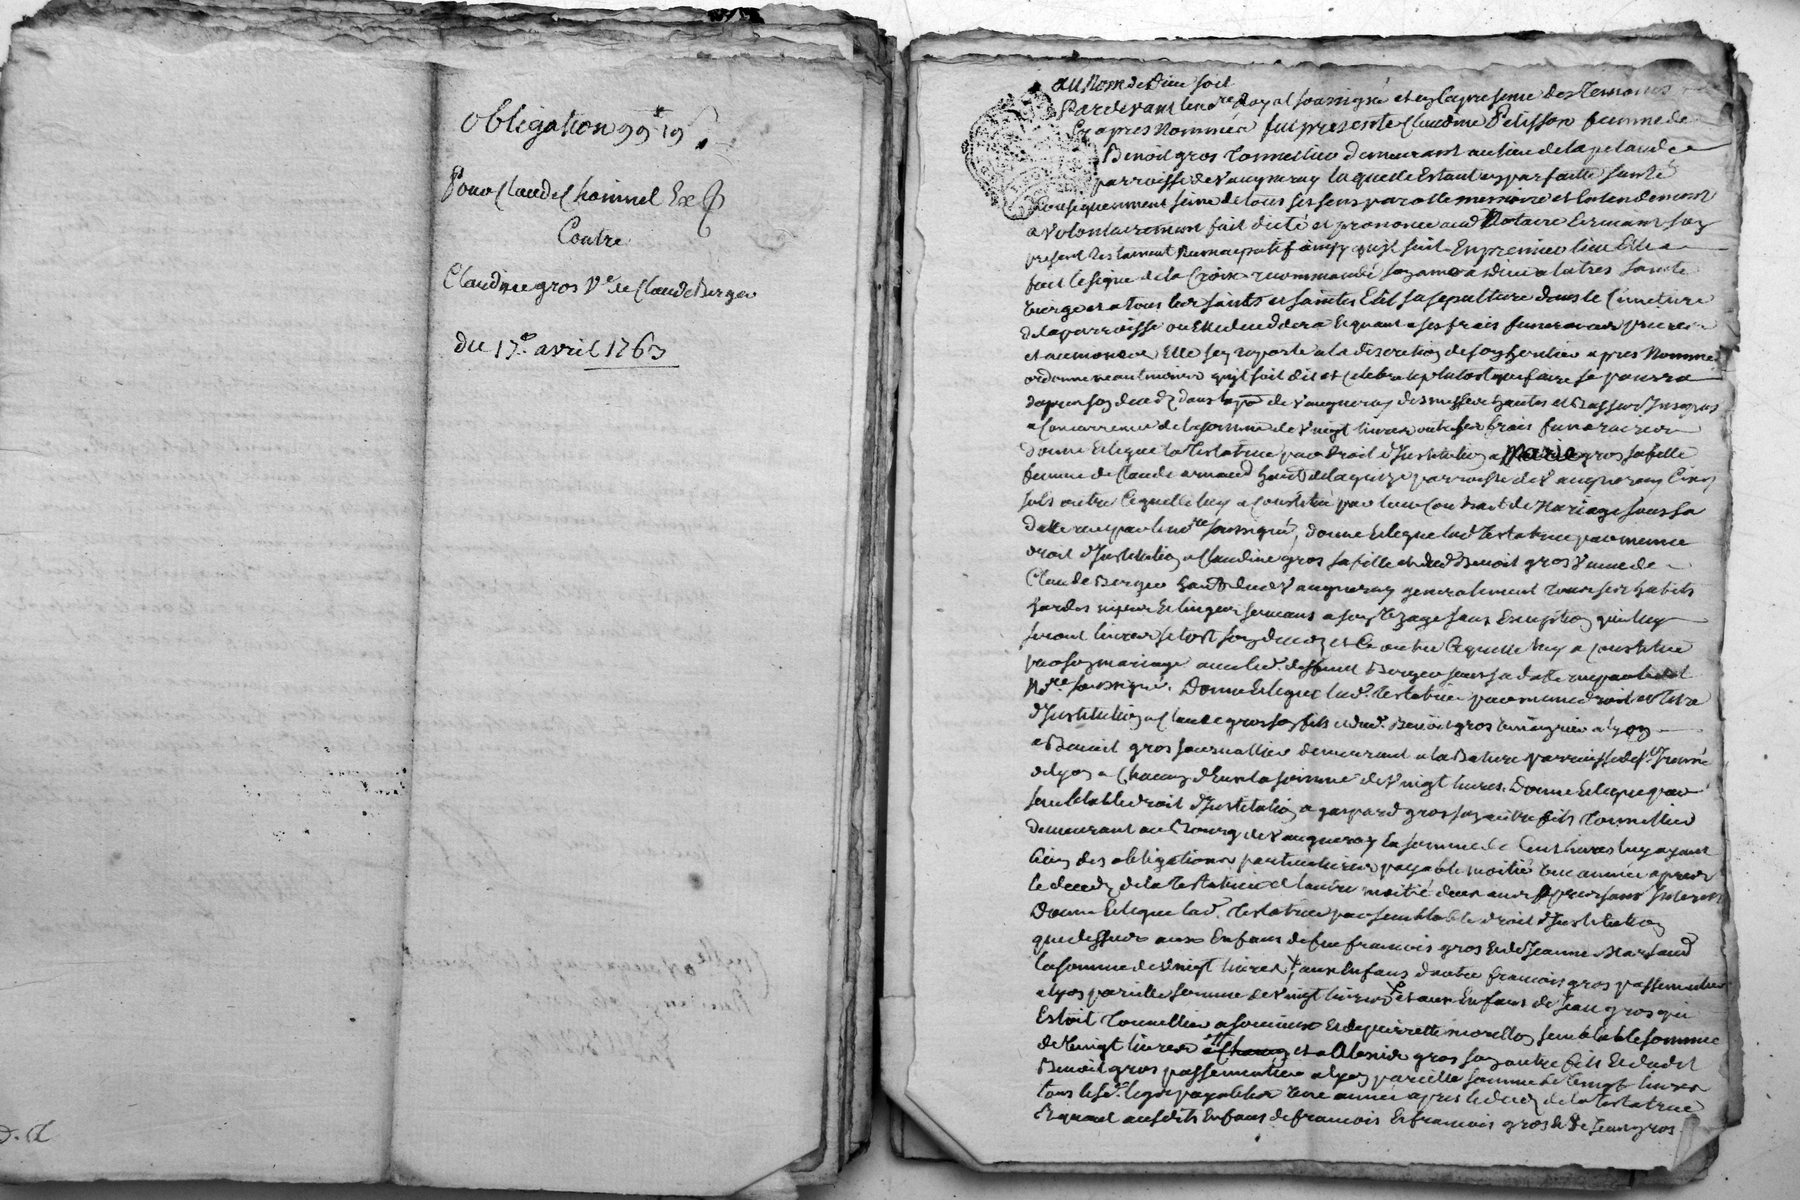 obligation 99# 19s
Pour Claude Chommel Ex
Contre
Claudine gros Ve de Claude Berger
du 17e avril 1763
au Nom de Dieu soit
Pardevant le nore Royal soussigné et en la presence des Temoins
Cy apres Nommés fut presente Claudine Pelisson femme de
Benoit gros Tonnellier demeurant au lieu de la pelande
parroisse de Vaugneray laquelle Estant en parfaitte santé
Consequemment seine de tous ses sens parolle memoire et Entendement
a Volontairement fait dicté et prononcé aud Notaire Ecrivant son
present Testament Nuncupatif ainsy qu'il suit En premier lieu Elle a
fait le signe de la Croix recommandé son ame a Dieu a la tres sainte
Vierge et a tous les saints et saintes Elit sa sepulture dans le Cimetiere
de la parroisse ou Elle decedera Et quant a ses frais funeraires prieres
et aumones Elle s'en raporte a la discretion de son heritier apres Nommé
ordonne neantmoins qu'il soit dit et Celebré le plutost que faire se pourra
d'apres son deced dans la par de Vaugneray des messes hautes et Basses Jusques
a Concurrence de la somme de Vingt livres outre ses frais funeraires
Donne et legue la Testatrice par droit d'Institution a Marie gros sa fille
femme de Claude arnaud habt de parroisse de Vaugneray Cinq
sols outre Ce quelle luy a Constitué par leur Contrat de Mariage sous sa
datte reçu par le nore soussigné, donne et legue lad Testatrice par meme
droit d'Institution a Claudine gros sa fille et dud Benoit gros Veuve de
Claude Berger habt dud Vaugneray generalement Tous ses habits
hardes nipes et linges servans a son Uzage sans Exception qui luy
seront livrés sitost son deced et Ce outre Ce quelle luy a Constitué
par son mariage avec led. deffunt Berger sous sa datte reçu par led
Nore soussigné. Donne et legue lad. Testatrice par meme droit et titre
d'Institution a Claude gros son fils et dud. Benoit gros a lyon
a Benoit gros Journallier demeurant a la parroisse de st Irenné
de lyon a Chacun d'Eux la somme de Vingt livres. Donne et legue par
semblable droit d'Institution a gaspard gros son autre fils Tonnellier
demeurant au Bourg de Vaugneray la somme de Cent livres luy ayant
des obligations particulieres payable moitié Une année apres
le deced de la Testatrice et l'autre moitié deux ans apres sans Interest
Donne et legue lad. Testatrice par semblable droit d'Institution
que dessus aux Enfans de feu francois gros et de Jeanne
la somme de Vingt livres, aux Enfans d'autre francois gros passementier
a lyon pareille somme de Vingt livres et aux Enfans de Jean gros qui
Estoit Tonnellier a et de pierrette semblable somme
de Vingt livres et a gros son autre fils et dudit
Benoit gros passementier a lyon pareille somme de Vingt livres
tous lesd. legs payables Une année apres le deced de la Testatrice
Et quant ausdits Enfans de francois Et francois gros et de Jean gros